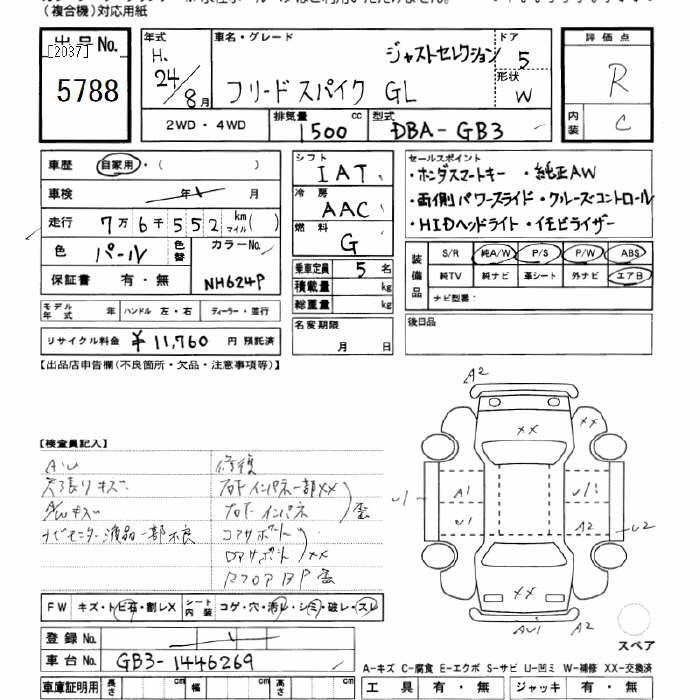 (複合機)対応用紙
出品No.
[2037]
5788
年式
H.
24/8月
車名・グレード
ジャストセレクション
フリードスパイク GL
ドア
5
形状
W
評価点
R
内装
C
2WD・4WD
排気量
1500 cc
型式
DBA-GB3
車歴 自家用・( )
車検 年 月
走行 7万6千552 km マイル( )
色 パール 色替 カラーNo.
NH624P
保証書 有・無
モデル年式 年 ハンドル 左・右 ディーラー・並行
リサイクル料金 ¥11,760 円 預託済
シフト
IAT
冷房
AAC
燃料
G
乗車定員 5 名
積載量 kg
総重量 kg
名変期限
月 日
セールスポイント
・ホンダスマートキー ・純正AW
・両側パワースライド・クルーズコントロール
・HIDヘッドライト・イモビライザー
装備品
S/R 純A/W P/S P/W ABS
純TV 純ナビ 革シート 外ナビ エアB
ナビ型番:
後日品
【出品店申告欄(不良箇所・欠品・注意事項等)】
【検査員記入】
AU 修復
天張りキズ
A/Wキズ
ナビモニター液晶一部不良
右FインパネーXX
右Fインパネ
コアサポート
XX
FW キズ・トビ石・割レX
シート内装 コゲ・穴・汚レ・シミ・破レ・スレ
登録No.
車台No. GB3-1446269
車庫証明用 長さ cm 幅 cm 高さ cm
A2
XX
XX
U1
A1
U1
A2
U2
XX
AU1
スペア
A-キズ C-腐食 E-エクボ S-サビ U-凹ミ W-補修 XX-交換済
工具 有・無 ジャッキ 有・無